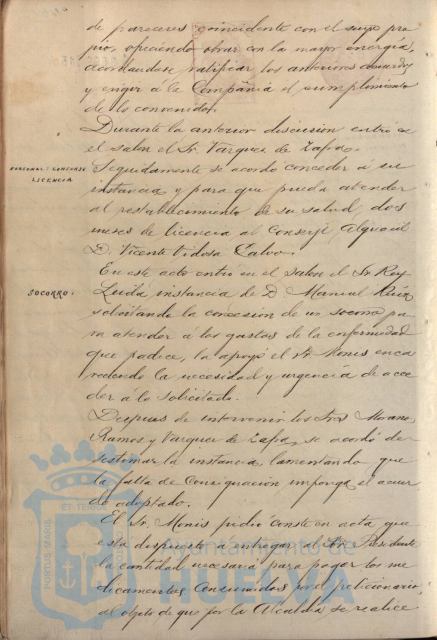 de pareceres coincidente con el suyo pro
pio, ofreciendo obrar con la mayor energía,
acordandose ratificar los anteriores acuerdos
y exigir a la Compañia el cumplimiento
de lo convenido.
Durante la anterior discusion entró en
el salon el Sr. Vazquez de Zafra.
PERSONAL: CONSERJE
LICENCIA
Seguidamente se acordó conceder á su
instancia y para que pueda atender
al restablecimiento de su salud, dos
meses de licencia al Conserje Alguacil
D. Vicente Vidosa Calvo.
En este acto entró en el salon el Sr. Rey
SOCORRO.
Leida instancia de D. Manuel Ruiz
solicitando la concesion de un socorro pa
ra atender á los gastos de la enfermedad
que padece, la apoyó el Sr. Monis enca
reciendo la necesidad y urgencia de acce
der a lo solicitado.
Despues de intervenir los Sres. Moreno,
Ramos y Vazquez de Zafra, se acordó de
sestimar la instancia, lamentando que
la falta de consignacion imponga el acuer
do adoptado.
El Sr. Monis pidió conste en acta que
está dispuesto a entregar al Sr. Presidente
la cantidad necesaria para pagar los me
dicamentos consumidos por el peticionario,
al objeto de que por la Alcaldia se realice
PORTUS MARIS
ET TERRAE
Ayuntamiento de
HUELVA